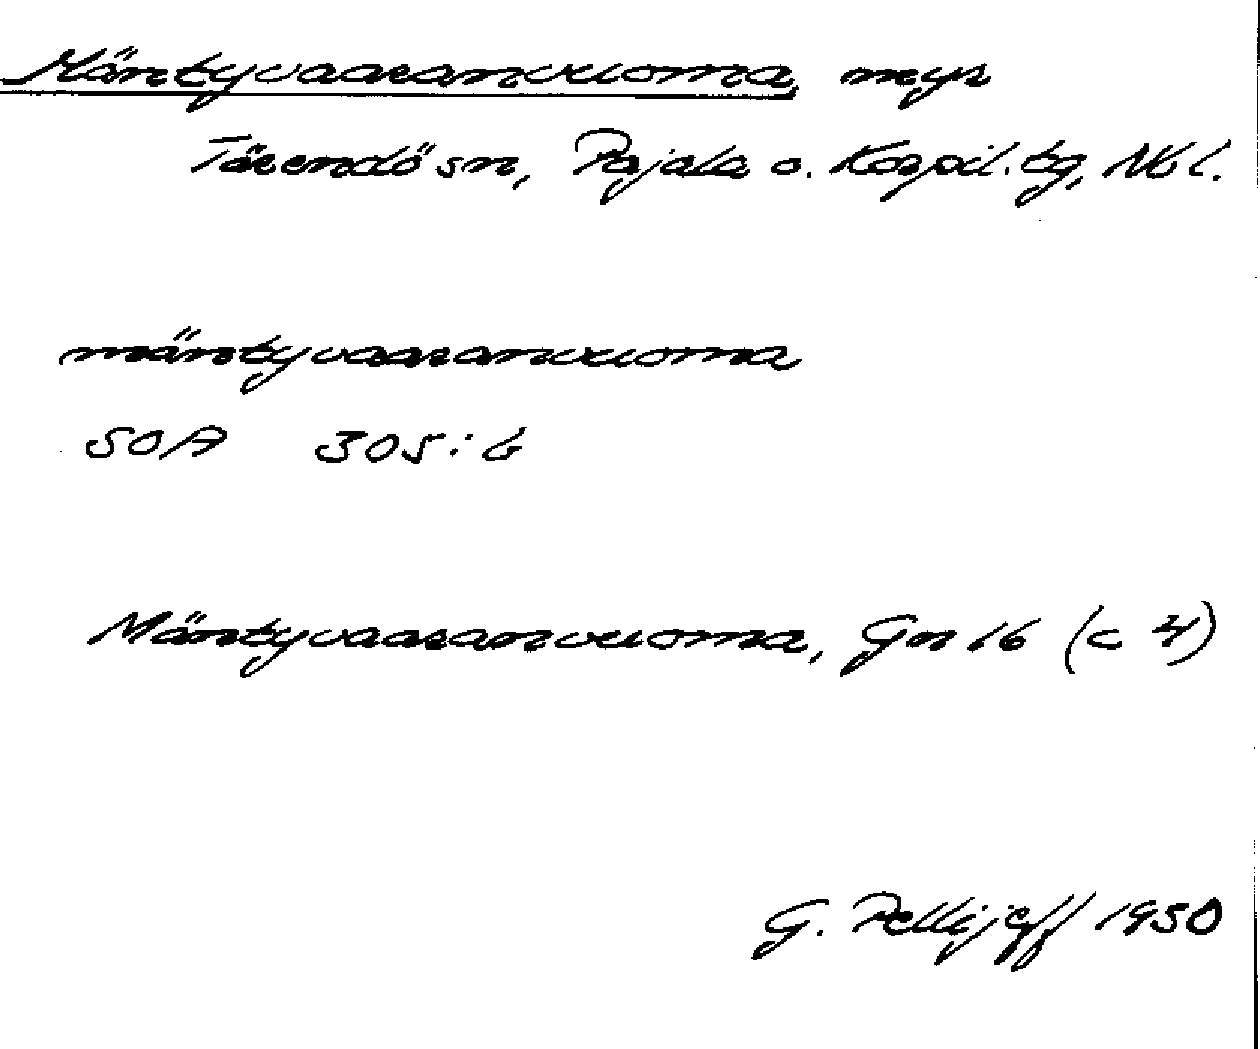 Mäntyvaaranvuoma myr
Tärendö sn, Pajala o. Korpil. tg, Nb l.
mäntyvaaranvuoma
SOA 305: 6
Mäntyvaaranvuoma, Gm 16 (c 4)
G. Pellijeff 1950